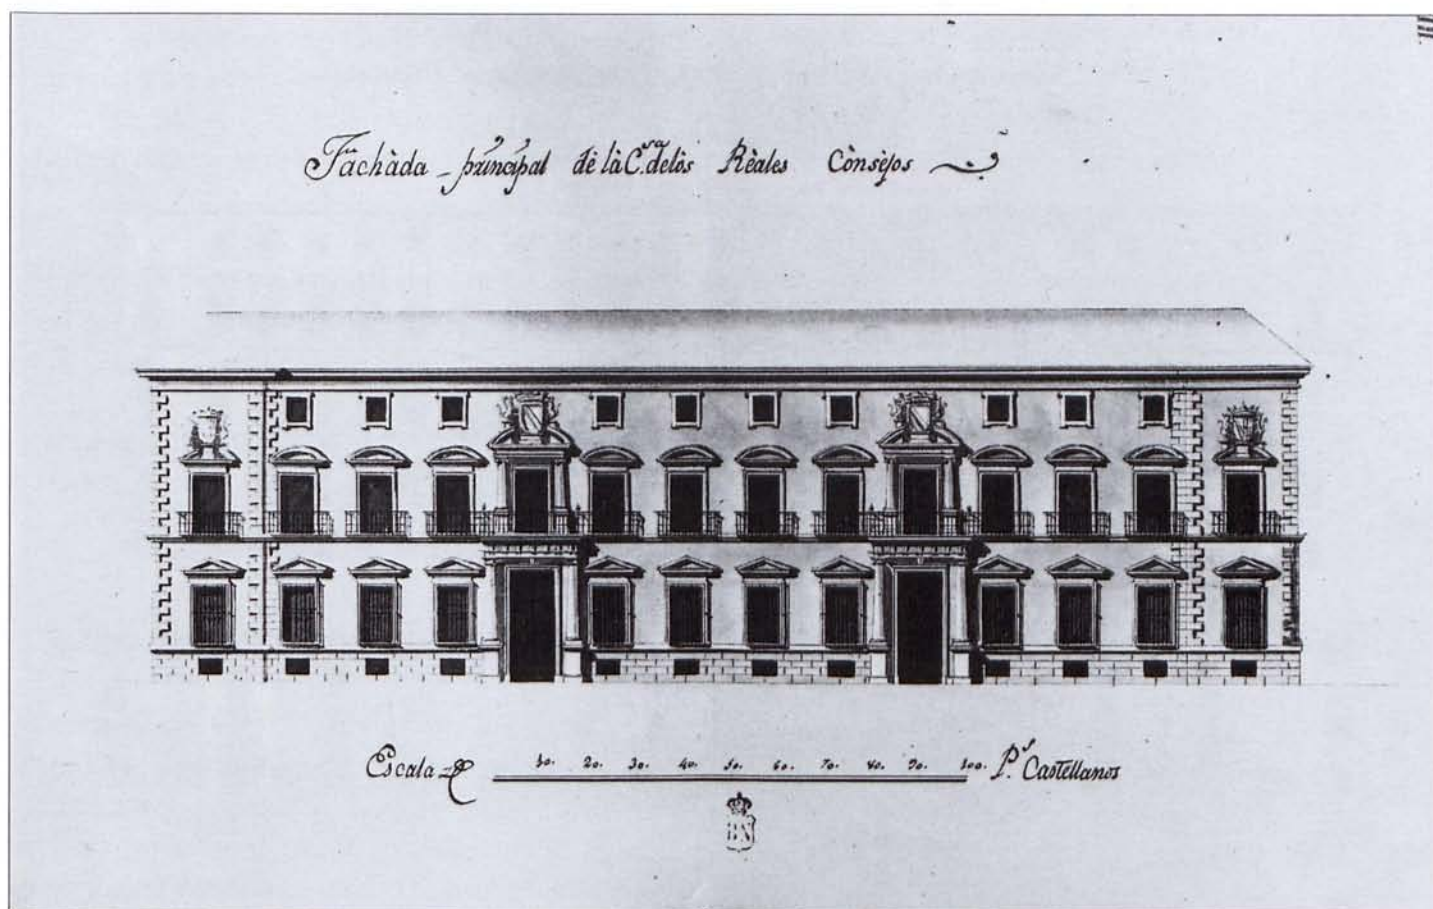 Fachàda principal dè là C.sa delòs Rèales Cònsejos
Escala 10. 20. 30. 40. 50. 60. 70. 80. 90. 100. P.s Castellanos
BN